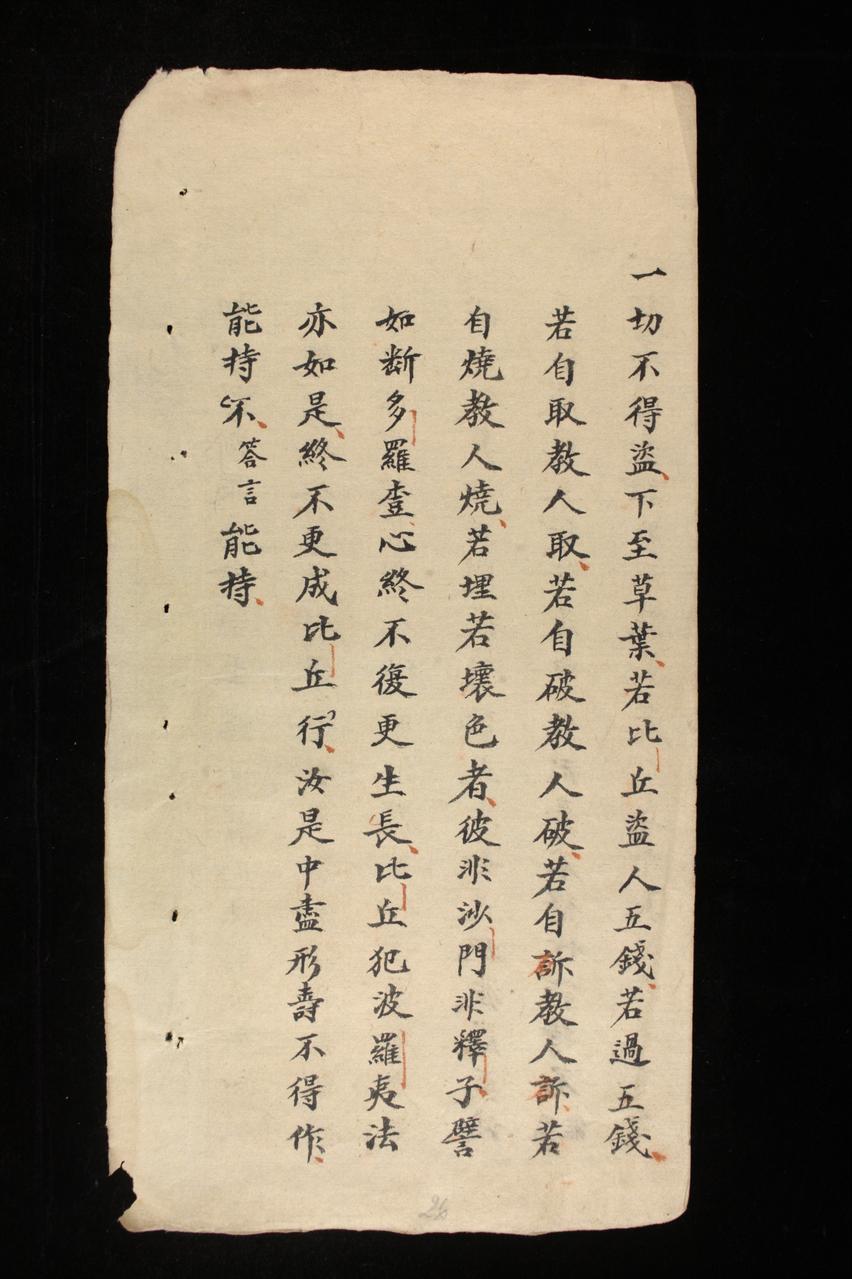 一切不得盜下至草葉若比丘盜人五錢若過五錢
若自取教人取若自破教人破若自訢教人訢若
自燒教人燒若埋若壞色者彼非沙門非釋子譬
如断多羅壴心終不復更生長比丘犯波羅夷法
亦如是終不更成比丘行汝是中盡形壽不得作
能持不答言能持
26